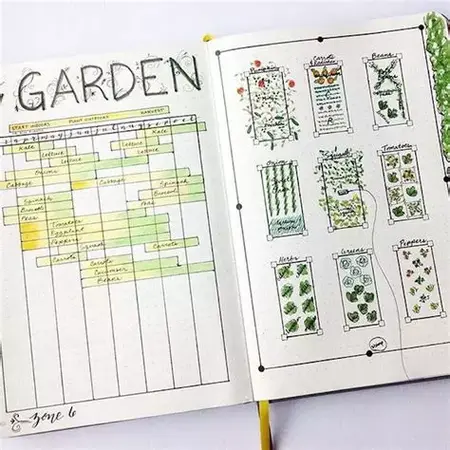 GARDEN
START INDOORS PLANT OUTDOORS HARVEST
Kale Kale
Lettuce Lettuce
Onions
Cabbage Cabbage
Spinach Spinach
Broccoli Broccoli
Peas Peas
Tomatoes
Eggplant
Peppers
Squash
Carrots Carrots
Carrots
Cucumber
Beans
Zone 6
Pumpkin Carrots Beans
Tomatoes
Herbs Greens Peppers